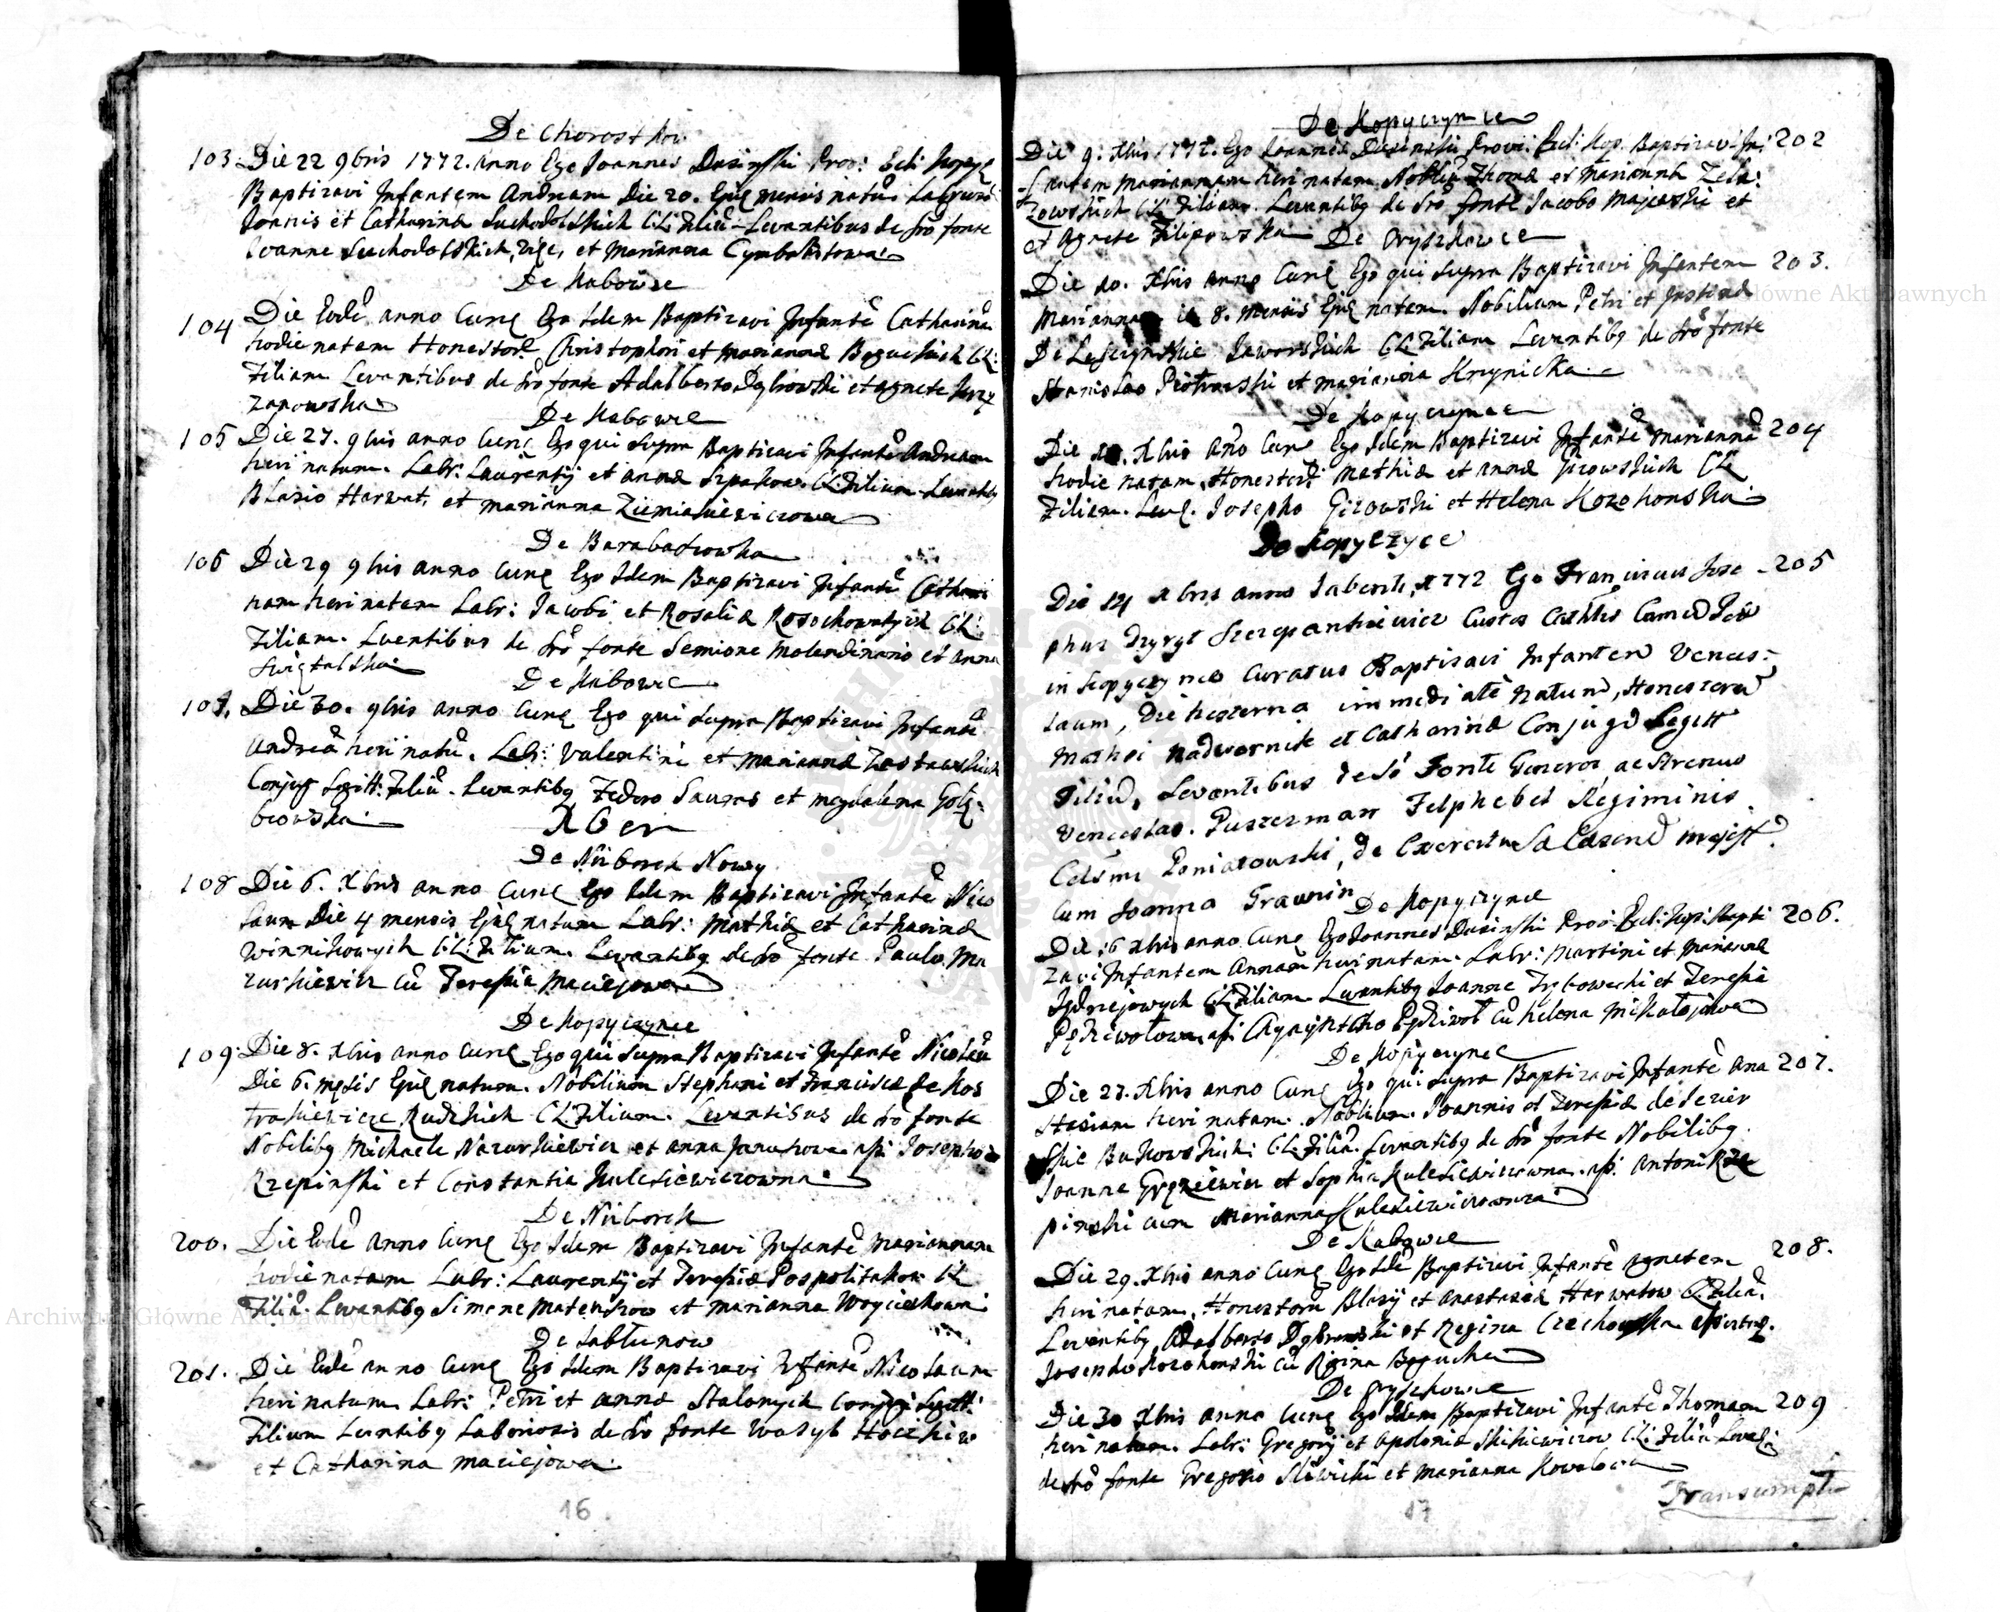 De Chorostkow
103. Die 22 9bris 1772. Anno Ego Joannes Dusinski Prov: Ecli Kopycz
Baptizavi Infantem Andream Die 20. Ejusq mensis natu. Labr
Joannis et Catharinæ Suchodolskich C:L: Filiu Levantibus de sro fonte
Joanne Suchodolskich, et Marianna Cymbalistowa
De Kabowce
104 Die Eode anno Curre Ego Idem Baptizavi Infante Catharina
hodie natam Honestor Christophori et Mariannæ Boguckich C:L:
Filiam Levantibus de sro fonte Adalberto Dąbrowski et Agnete Krzy
zanowska
De Kabowce
105 Die 27. 9bris anno Curre Ego qui supra Baptizavi Infante Andream
heri natum. Labr: Laurentij et Annæ C:L: Filium Levantibq
Blasio Harwat, et Marianna Ziemiakiewiczowa
De Karabaczowka
106 Die 29 9bris anno Curre Ego Idem Baptizavi Infante Cathari
nam heri natam Labr: Jacobi et Rosaliæ Rosochowatych C:L:
Filiam. Lventibus de sro fonte Semione Molendinario et Anna
De Kabowce
107. Die 30. 9bris anno Curre Ego qui supra Baptizavi Infante
Andrea heri natu. Labr: Valentini et Mariannæ
Conjug Legitt: Filiu. Levantibq Fedoro Sauras et Magdalena Gołę
biowska
Xber
De Niiborek Nowy
108 Die 6. Xbris anno Curre Ego Idem Baptizavi Infante Nico
laum Die 4 mensis Ejusq natum Labr: Mathiæ et Catharinæ
Winnikowych C:L: Filium. Levantibq de sro fonte Paulo Ma
zurkiewicz cu Teresia Maciejowa
De Kopyczynce
109. Die 8. Xbris anno Curre Ego qui supra Baptizavi Infante Nicolau
Die 6. mesis Ejusq natum. Nobilium Stephani et Franciscæ de Kos
trakiewicze Rudzkich C:L: Filium. Levantibus de sro fonte
Nobilibq Michaele Nazarkiewicz et Anna Janukowa asi Josepho
Rzepinski et Constantia Kulesiewiczowna
De Niiborek
200. Die Eode Anno Curre Ego Idem Baptizavi Infante Mariannam
hodie natam Labr: Laurentij et Teresiæ Pospolitakow C:L:
Filia. Levantibq Simone et Marianna Woyciechowa
De Jabłunow
201. Die Eode anno Curre Ego Idem Baptizavi Infante Nicolaum
heri natum Labr: Petri et Annæ Stalonych Conjug Legitt:
Filium Lventibq Laboriosis de sro fonte Wasyl
et Catharina Maciejowa
16
De Kopyczynce
Die 9. Xbris 1772. Ego Joannes Dusinski Provi: Ecli: Kop. Baptizavi In: 202
fantem Mariannam heri natam Nobiliu Thomæ et Mariannæ Zela:
zowskich C:L: Filiam. Levantibq de sro fonte Jacobo Majewski et
et Agnete Filipowska
De Oryszkowce
Die 10. Xbris anno Curre Ego qui supra Baptizavi Infantem 203.
Marianna 8. Mensis Ejusq natam. Nobilium Petri et Justinæ
De Jaworskich C:L: Filiam Levantibq de sro fonte
Stanislao Piotrowski et Marianna Krynicka
De Kopyczynce
Die Xbris Ano Cur Ego Idem Baptizavi Infante Marianna 204
hodie natam, Honestor Mathiæ et Annæ Gizowskich C:L:
Filiam. Leve. Josepho Gizowski et Helena Kozokonska
De Kopyczyce
Die 14 Xbris anno labenti, 1772 Ego Franciscus Jose 205
phus Szczepankiewicz Custos
in Kopyczynce Curatus Baptisavi Infantem Vences-
laum, Die hesterna immediate natum, Honestorum
Mathei Nadwornik et Catharinæ Conjugum Legitt
Filium, Levantibus de So Fonte Generoi ac Strenuo
Venceslao. Puszerman Felphebel Regiminis
Celsmi Poniatowski, de Exercitu Sa Cæsareæ majest.
Cum Joanna Frawnin
De Kopyczynce
Die 16 Xbris anno Curre Ego Joannes Dusinski Provi Ecli: Kopi: Bapti 206.
zavi Infantem Annam heri natam. Labr: Martini et Mariannæ
Jędrzejowych C:L: Filiam Levantibq Joanne et Teresia
Pędziwotowa, asi Pędziwot cu Helena Mikołajowa
De Kopyczynce
Die 27. Xbris anno Curre Ego qui supra Baptizavi Infante Ana 207.
stasiam heri natam. Nobilium. Joannis et Teresiæ de Jezier
skie Bukowskich C:L: Filia. Levantibq de sro fonte Nobilibq.
Joanne et Sophia Kulesiewiczowna. asi: Antoni Rze
pinski cum Marianna Kulesiewiczowna
De Kabowce
Die 29. Xbris anno Curre Ego Ide Baptizavi Infante Agnetem 208.
heri natam, Honestoru Blasij et Anastasiæ Harwatow C:L: Filia.
Levantibq Adalberto Dąbrowski et Regina Czechowska
Josepho Kozokonski cu Regina Bogucka
De Oryszkowce
Die 30 Xbris anno Curre Ego Idem Baptizavi Infante Thomam 209
heri natum. Labr: Gregorij et Apoloniæ C:L: Filiu Leve:
de sro fonte Gregorio Sławicki et Marianna Kowalowa
Transumpta
17
Archiwum Główne Akt Dawnych
Główne Akt Dawnych